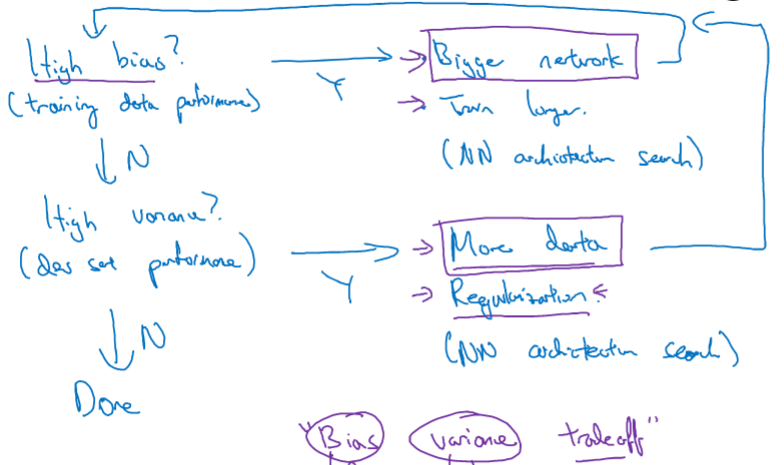 High bias?
(training data performance)
Y
Bigger network
Train longer.
(NN architecture search)
N
High variance?
(dev set performance)
Y
More data
Regularization.
(NN architecture search)
N
Done
"Bias variance tradeoff"